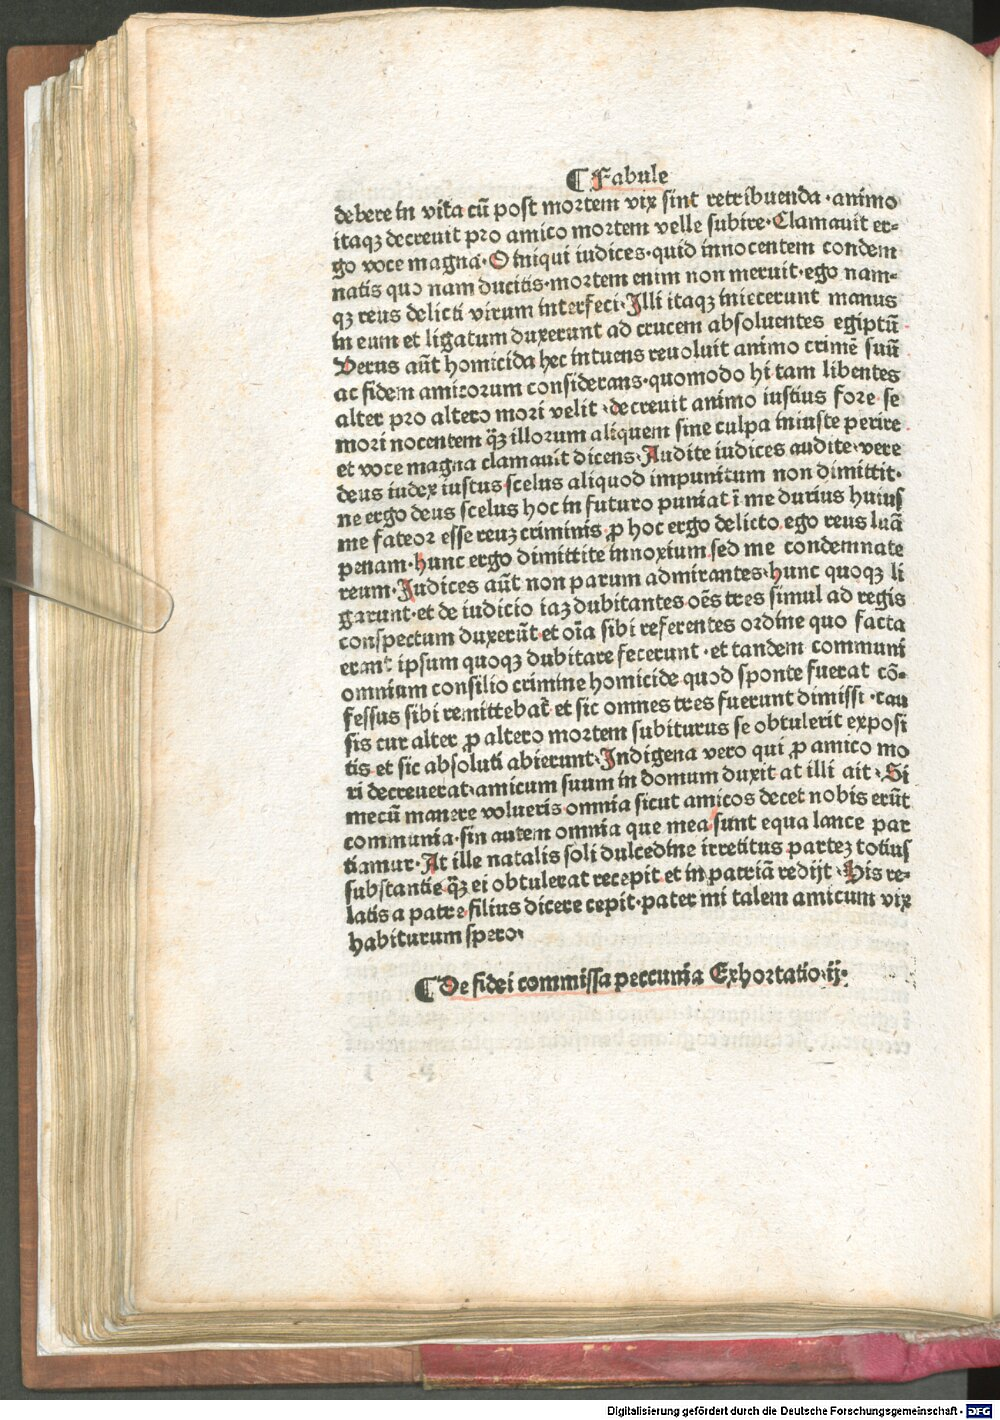 ¶ Fabule
debere in vita cū post mortem vix sint retribuenda · animo
itaqꝫ decreuit pro amico mortem velle subire · Clamauit er⸗
go voce magna · O iniqui iudices · quid innocentem condem
natis quo nam ducitis · mortem enim non meruit · ego nam⸗
qꝫ reus delicti virum interfeci · Illi itaqꝫ iniecerunt manus
in eum et ligatum duxerunt ad crucem absoluentes egiptū
Verus aūt homicida hec intuens reuoluit animo crimē suū
ac fidem amicorum considerans · quomodo hi tam libentes
alter pro altero mori velit · decreuit animo iustius fore se
mori nocentem qꝫ̄ illorum aliquem sine culpa iniuste perire
et voce magna clamauit dicens · Audite iudices audite · vere
deus iudex iustus scelus aliquod impunitum non dimittit ·
ne ergo deus scelus hoc in futuro puniat ī me durius huius
me fateor esse reuꝫ criminis ꝓ hoc ergo delicto ego reus luā
penam · hunc ergo dimittite innoxium sed me condemnate
reum · Iudices aūt non parum admirantes · hunc quoqꝫ li
garunt · et de iudicio iaꝫ dubitantes oēs tres simul ad regis
conspectum duxerūt et oīa sibi referentes ordine quo facta
erant ipsum quoqꝫ dubitare fecerunt · et tandem communi
omnium consilio crimine homicide quod sponte fuerat cō⸗
fessus sibi remittebat̄ et sic omnes tres fuerunt dimissi · cau
sis cur alter ꝓ altero mortem subiturus se obtulerit exposi
tis et sic absoluti abierunt · Indigena vero qui ꝓ amico mo
ri decreuerat · amicum suum in domum duxit at illi ait · Si
mecū manere volueris omnia sicut amicos decet nobis erūt
communia · sin autem omnia que mea sunt equa lance par
tiamur · At ille natalis soli dulcedine irretitus parteꝫ totius
substantie qꝫ̄ ei obtulerat recepit et in patriā redijt · His re⸗
latis a patre filius dicere cepit · pater mi talem amicum vix
habiturum spero ·
¶ De fidei commissa peccunia Exhortatio · ij ·
Digitalisierung gefördert durch die Deutsche Forschungsgemeinschaft - DFG